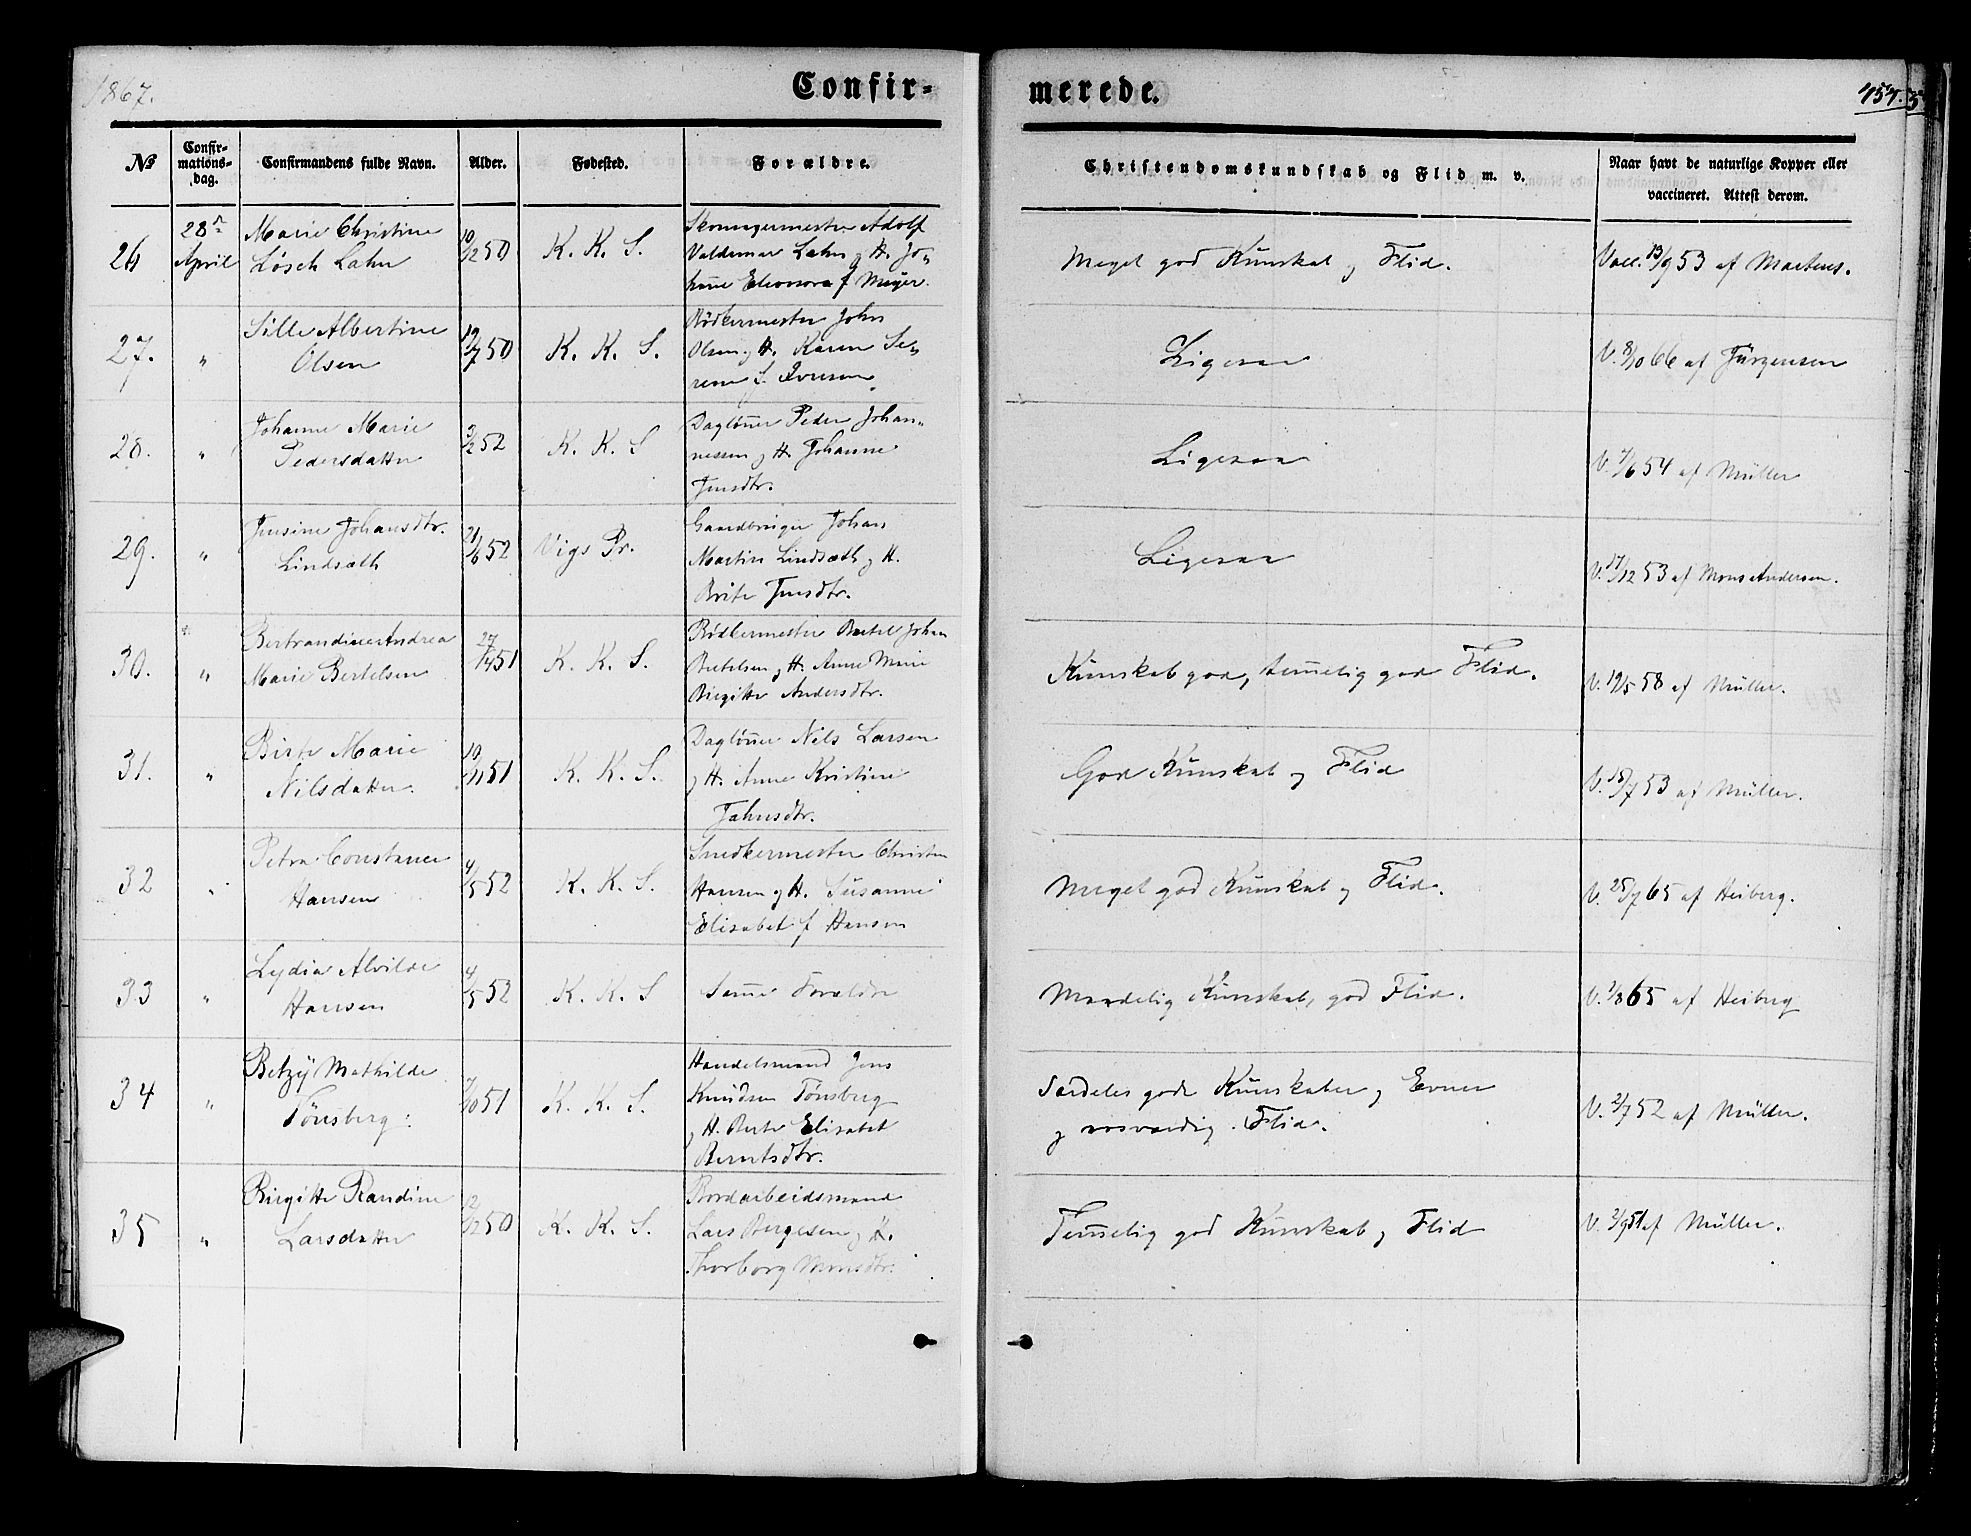 1867.
Confir-
merede.
454.
№
Confir-
mations-
dag.
Confirmandens fulde Navn.
Alder.
Fødested.
Forældre.
Christendomskundskab og Flid m. v.
Naar havt de naturlige Kopper eller
vaccineret. Attest derom.
26
28
April
Marie Christine
Løsch Lahn
10/12 50
K. K. S.
Adolf
Valdemar Lahn og H. Jo-
hanne Eleonora f Meyer.
Meget god Kunskab og Flid.
Vacc. 13/9 53 af Martens.
27.
"
Sille Albertine
Olsen
19/7 50
K. K. S.
Bödkermester John
Olsen og H. Karen Se-
rene S. Iversen
Ligesaa
V. 8/10 66 af Jürgensen
28.
"
Johanne Marie
Pedersdatter
3/2 52
K. K. S
Daglöner Peder Johan-
nessen og H. Johanne
Jensdtr.
Ligesaa
V. 7/6 54 af Müller
29.
"
Jensine Johansdtr.
Lindsæth
21/6 52
Vigs Pr.
Gaardbruger Johan
Martin Lindsæth og H.
Brite Jensdtr.
Ligesaa
V. 17/12 53 af Mons Andersen.
30.
"
Bertrandine Andrea
Marie Bertelsen
27/4 51
K. K. S.
Bødkermester Bertel Johan
Bertelsen og H. Anne Marie
Birgitte Andersdtr.
Kunskab god, temelig god Flid.
V. 19/5 58 af Müller.
31.
"
Birte Marie
Nilsdatter.
10/11 51
K. K. S.
Daglöner Nils Larsen
og H. Anne Kristine
Jahnsdtr.
God Kunskab og Flid
V. 15/7 53 af Müller.
32
"
Petra Constance
Hansen
4/5 52
K. K. S.
Snedkermester Christen
Hansen og H. Susanne
Elisabet f Hansen
Meget god Kunskab og Flid.
V. 25/7 65 af Heiberg.
33
"
Lydia Alvilde
Hansen
4/5 52
K. K. S
Same Forældre
Maadelig Kunskab, god Flid.
V. 1/8 65 af Heiberg
34
"
Betzÿ Mathilde
Tönsberg.
7/10 51
K. K. S.
Handelsmand Jens
Knudsen Tønsberg
og H. Berte Elisabet
Berntsdtr.
Særdeles gode Kunskaber og Evner
og rosværdig Flid.
V. 2/7 52 af Müller.
35
"
Birgitte Randine
Larsdatter
12/12 50
K. K. S.
Bordarbeidsmand
Lars Börgesen og H.
Thorborg Monsdtr.
Temelig god Kunskab og Flid
V. 2/9 51 af Müller.